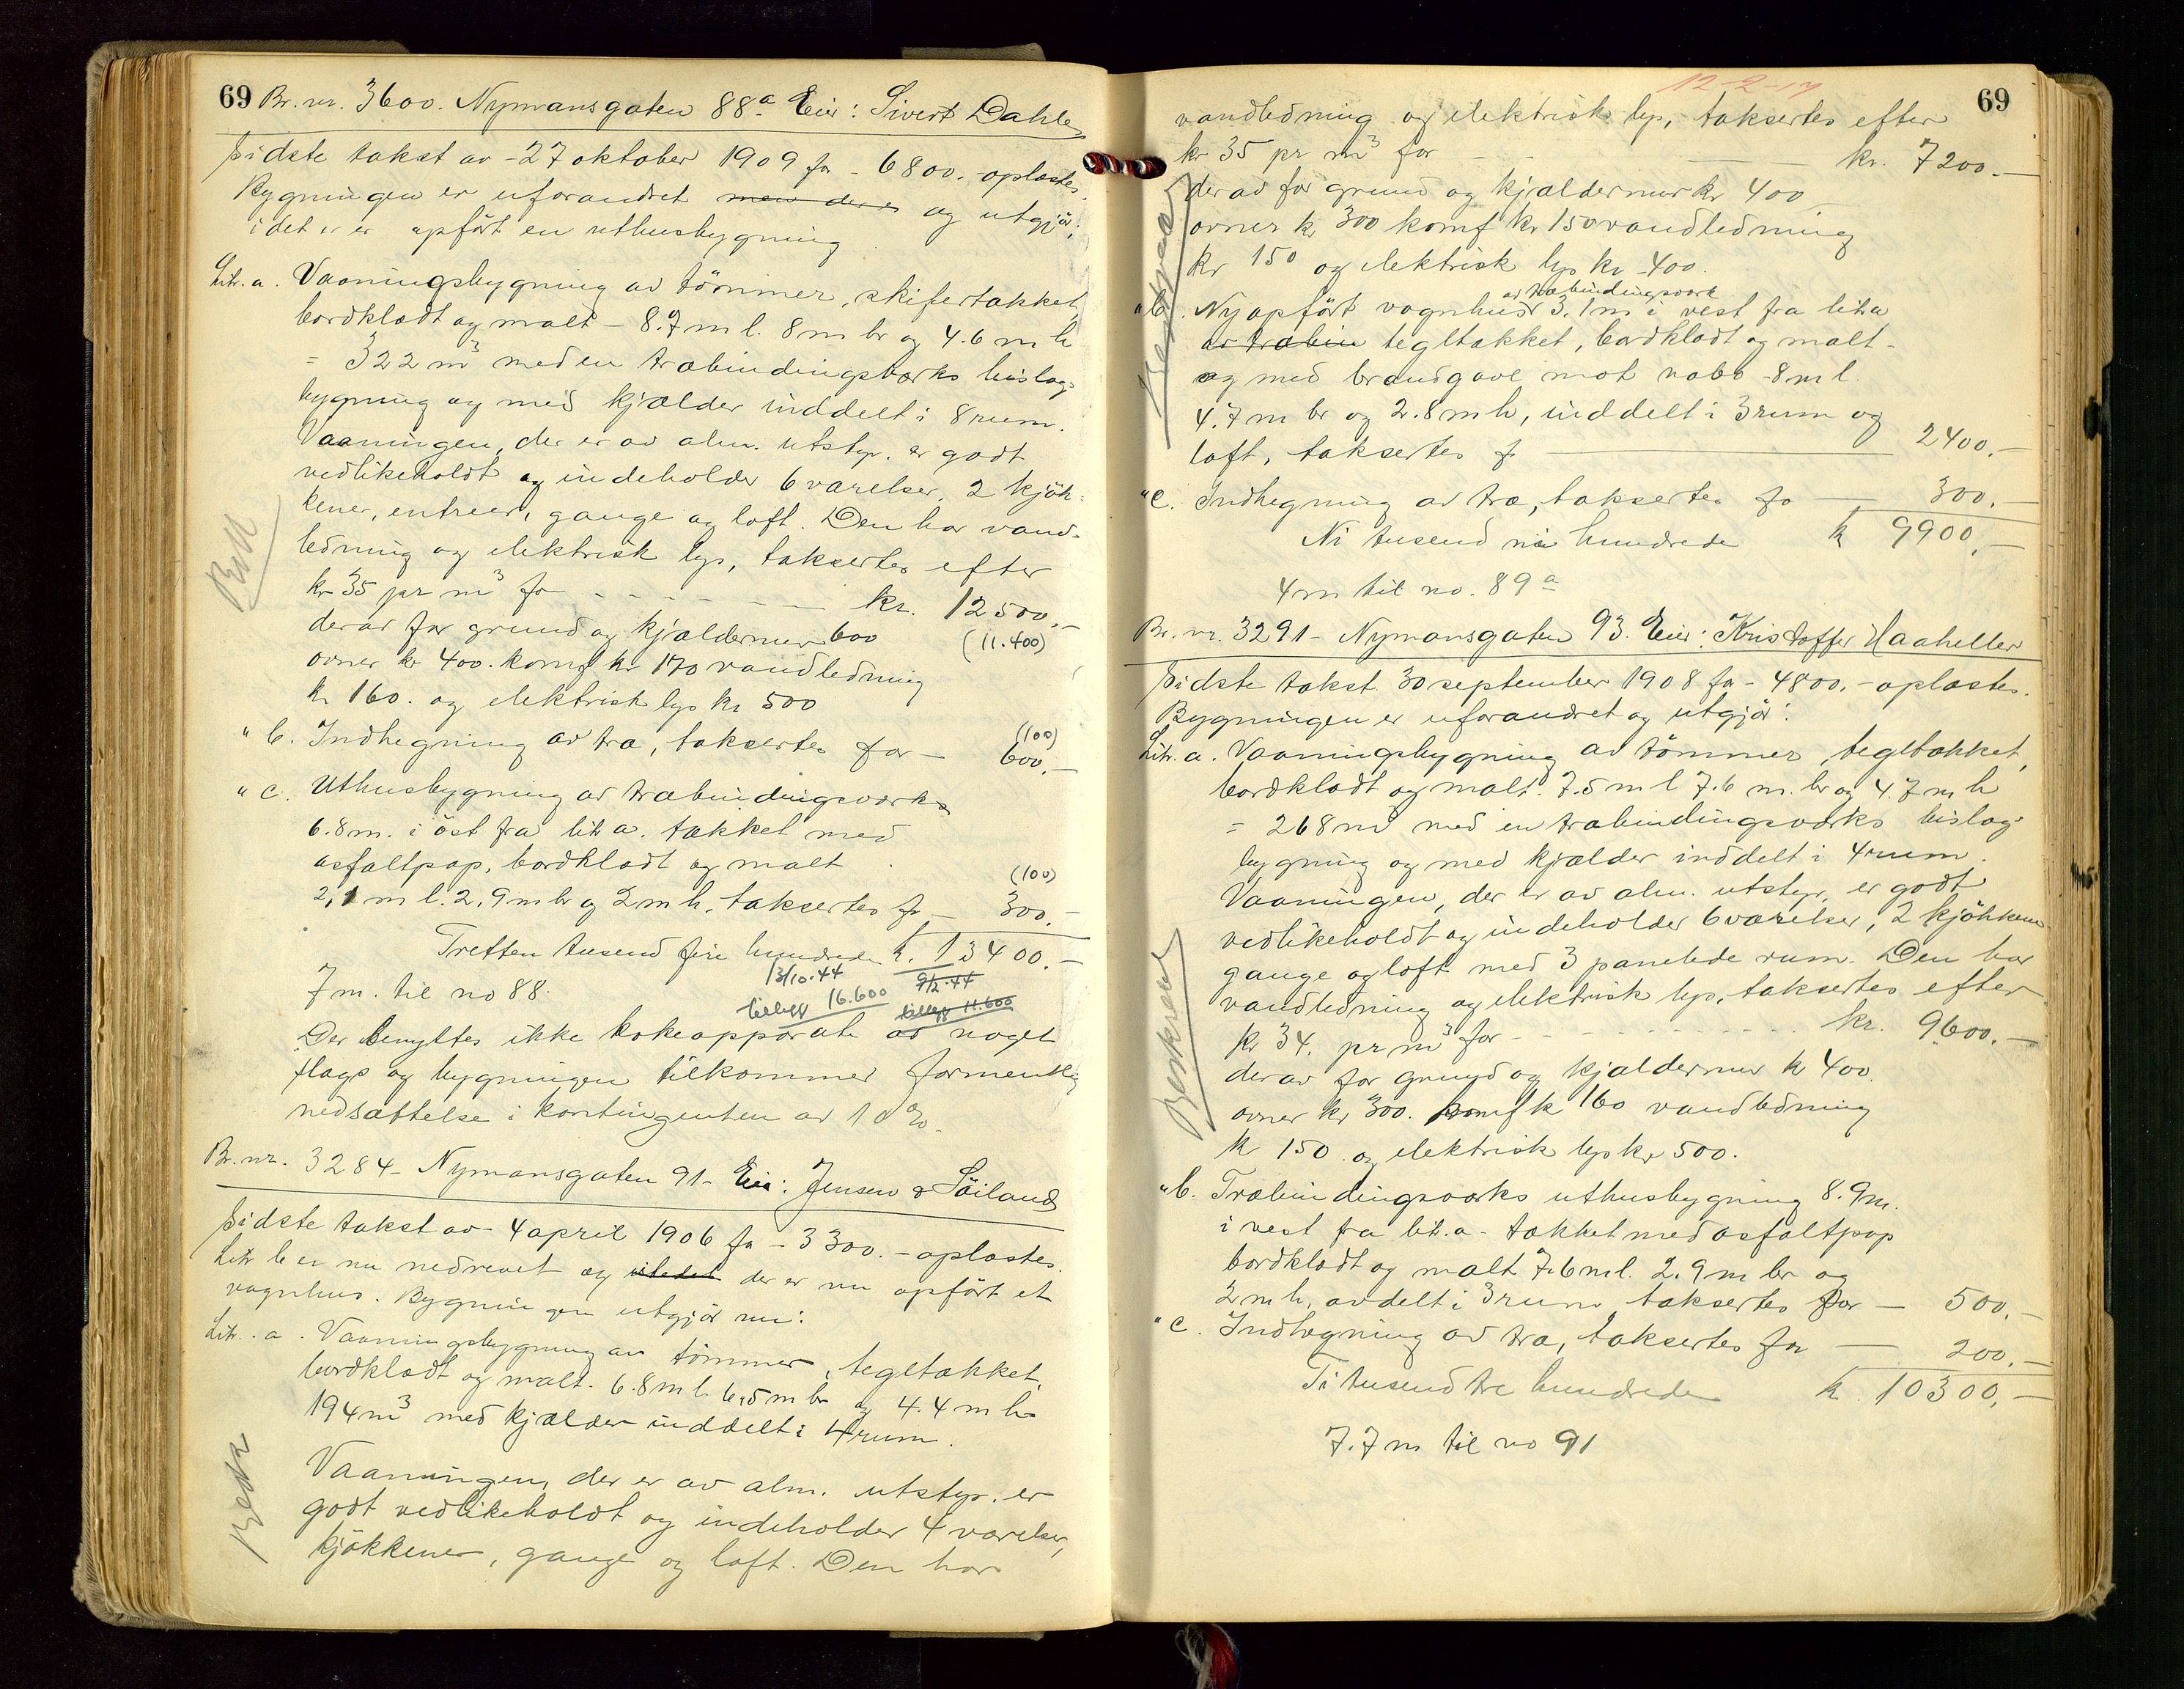 69 Br. nr. 3600. Nymansgaten 88a. Eier: Sivert Dahle
Sidste takst av - 27 oktober 1909 for - 6800.- oplæstes.
Bygningen er uforandret men der er og utgjör:
idet er opfört en uthusbygning
Litr. a. Vaaningsbygning av tömmer, skifertækket,
bordklædt og malt - 8.7 m l. 8 m br og 4.6 m h
= 322 m³ med en træbindingsværks bislag-
bygning og med kjælder inddelt i 8 rum.
Vaaningen, der er av alm. utstyr. er godt
vedlikeholdt og indeholder 6 værelser, 2 kjök-
kener, entreer, gange og loft. Den har vand-
ledning og elektrisk lys, taksertes efter
kr 35 pr m³ for - - - - - - - kr. 12500.-
derav for grund og kjældermur 600 (11.400)
ovner kr 400. komf kr 170 vandledning
kr 160. og elektrisk lys kr 500
" b. Indhegning av træ, taksertes for - (100)
600.-
" c. Uthusbygning av træbindingsværks
6.8 m. i öst fra lit a. tækket med
asfaltpap, bordklædt og malt
2,1 m l. 2,9 m br og 2 m h, taksertes for - (100)
300.-
Tretten tusend fire hundrede k. 13400.-
13/10.44 9/2.44
7 m. til no 88.
tillegg 16.600 tillegg 11.600
Der benyttes ikke kokeapparate av noget
slags og bygningen tilkommer formentlig
nedsættelse i kontingenten av 10 %.
Br. nr. 3284 - Nymansgaten 91 - Eier: Jensen & Söiland
Sidste takst av - 4 april 1906 for - 3300.- oplæstes.
Litr b er nu nedrevet og istedet der er nu opfört et
vognhus. Bygningen utgjör nu:
Litr. a. Vaaningsbygning av tömmer, tegltækket,
bordklædt og malt. 6.8 m l. 6,5 m br og 4.4 m h
194 m³ med kjælder inddelt i 4 rum.
Vaaningen, der er av alm. utstyr. er
godt vedlikeholdt og indeholder 4 værelser,
kjökkener, gange og loft. Den har
12-2-17
69
vandledning og elektrisk lys, taksertes efter
kr 35 pr m³ for - - kr. 7200.-
derav for grund og kjældermur kr 400
ovner kr 300 komf kr 150 vandledning
kr 150 og elektrisk lys kr 400.
av træbindingsværk
" b. Nyopfört vognhus 3.1 m i vest fra lit a
av træbin tegltækket, bordklædt og malt -
og med brandgavl mot nabo - 8 m l.
4.7 m br og 2.8 m h, inddelt i 3 rum og
loft, taksertes for - 2400.-
" c. Indhegning av træ, taksertes for - 300.-
Ni tusend ni hundrede k 9900.-
4 m til no. 89a
Br. nr. 3291 - Nymansgaten 93. Eier: Kristoffer Haaheller
Sidste takst 30 september 1908 for - 4800.- oplæstes.
Bygningen er uforandret og utgjör:
Litr. a. Vaaningsbygning av tömmer, tegltækket,
bordklædt og malt. 7.5 m l 7.6 m. br og 4.7 m h
= 268 m³ med en træbindingsværks bislag-
bygning og med kjælder inddelt i 4 rum.
Vaaningen, der er av alm. utstyr, er godt
vedlikeholdt og indeholder 6 værelser, 2 kjökkener
gange og loft med 3 panelede rum. Den har
vandledning og elektrisk lys, taksertes efter
kr 34. pr m³ for - - - - - kr. 9600.-
derav for grund og kjældermur kr 400.
ovner kr 300. komf k 160 vandledning
k 150 og elektrisk lys kr 500.
" b. Træbindingsværks uthusbygning 8.9 m.
i vest fra lit. a - tækket med asfaltpap
bordklædt og malt 7.6 m l. 2.9 m br og
2 m h, avdelt i 3 rum, taksertes for - 500.-
" c. Indhegning av træ, taksertes for - 200.-
Ti tusend tre hundrede k. 10300.-
7.7 m til no 91
Beskrevet